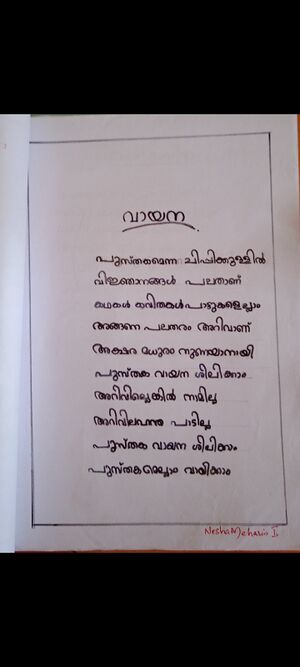 വായന
പുസ്തകമെന്ന ചിപ്പിക്കുള്ളിൽ
വിജ്ഞാനങ്ങൾ പലതാണ്
കഥകൾ കവിതകൾ പാട്ടുകളെല്ലാം
അങ്ങനെ പലതരം അറിവാണ്
അക്ഷര മധുരം നുണയാനായി
പുസ്തക വായന ശീലിക്കാം
അറിവില്ലെങ്കിൽ നാമില്ല
പാടില്ല
പുസ്തക വായന ശീലിക്കാം
പുസ്തകമെല്ലാം വായിക്കാം